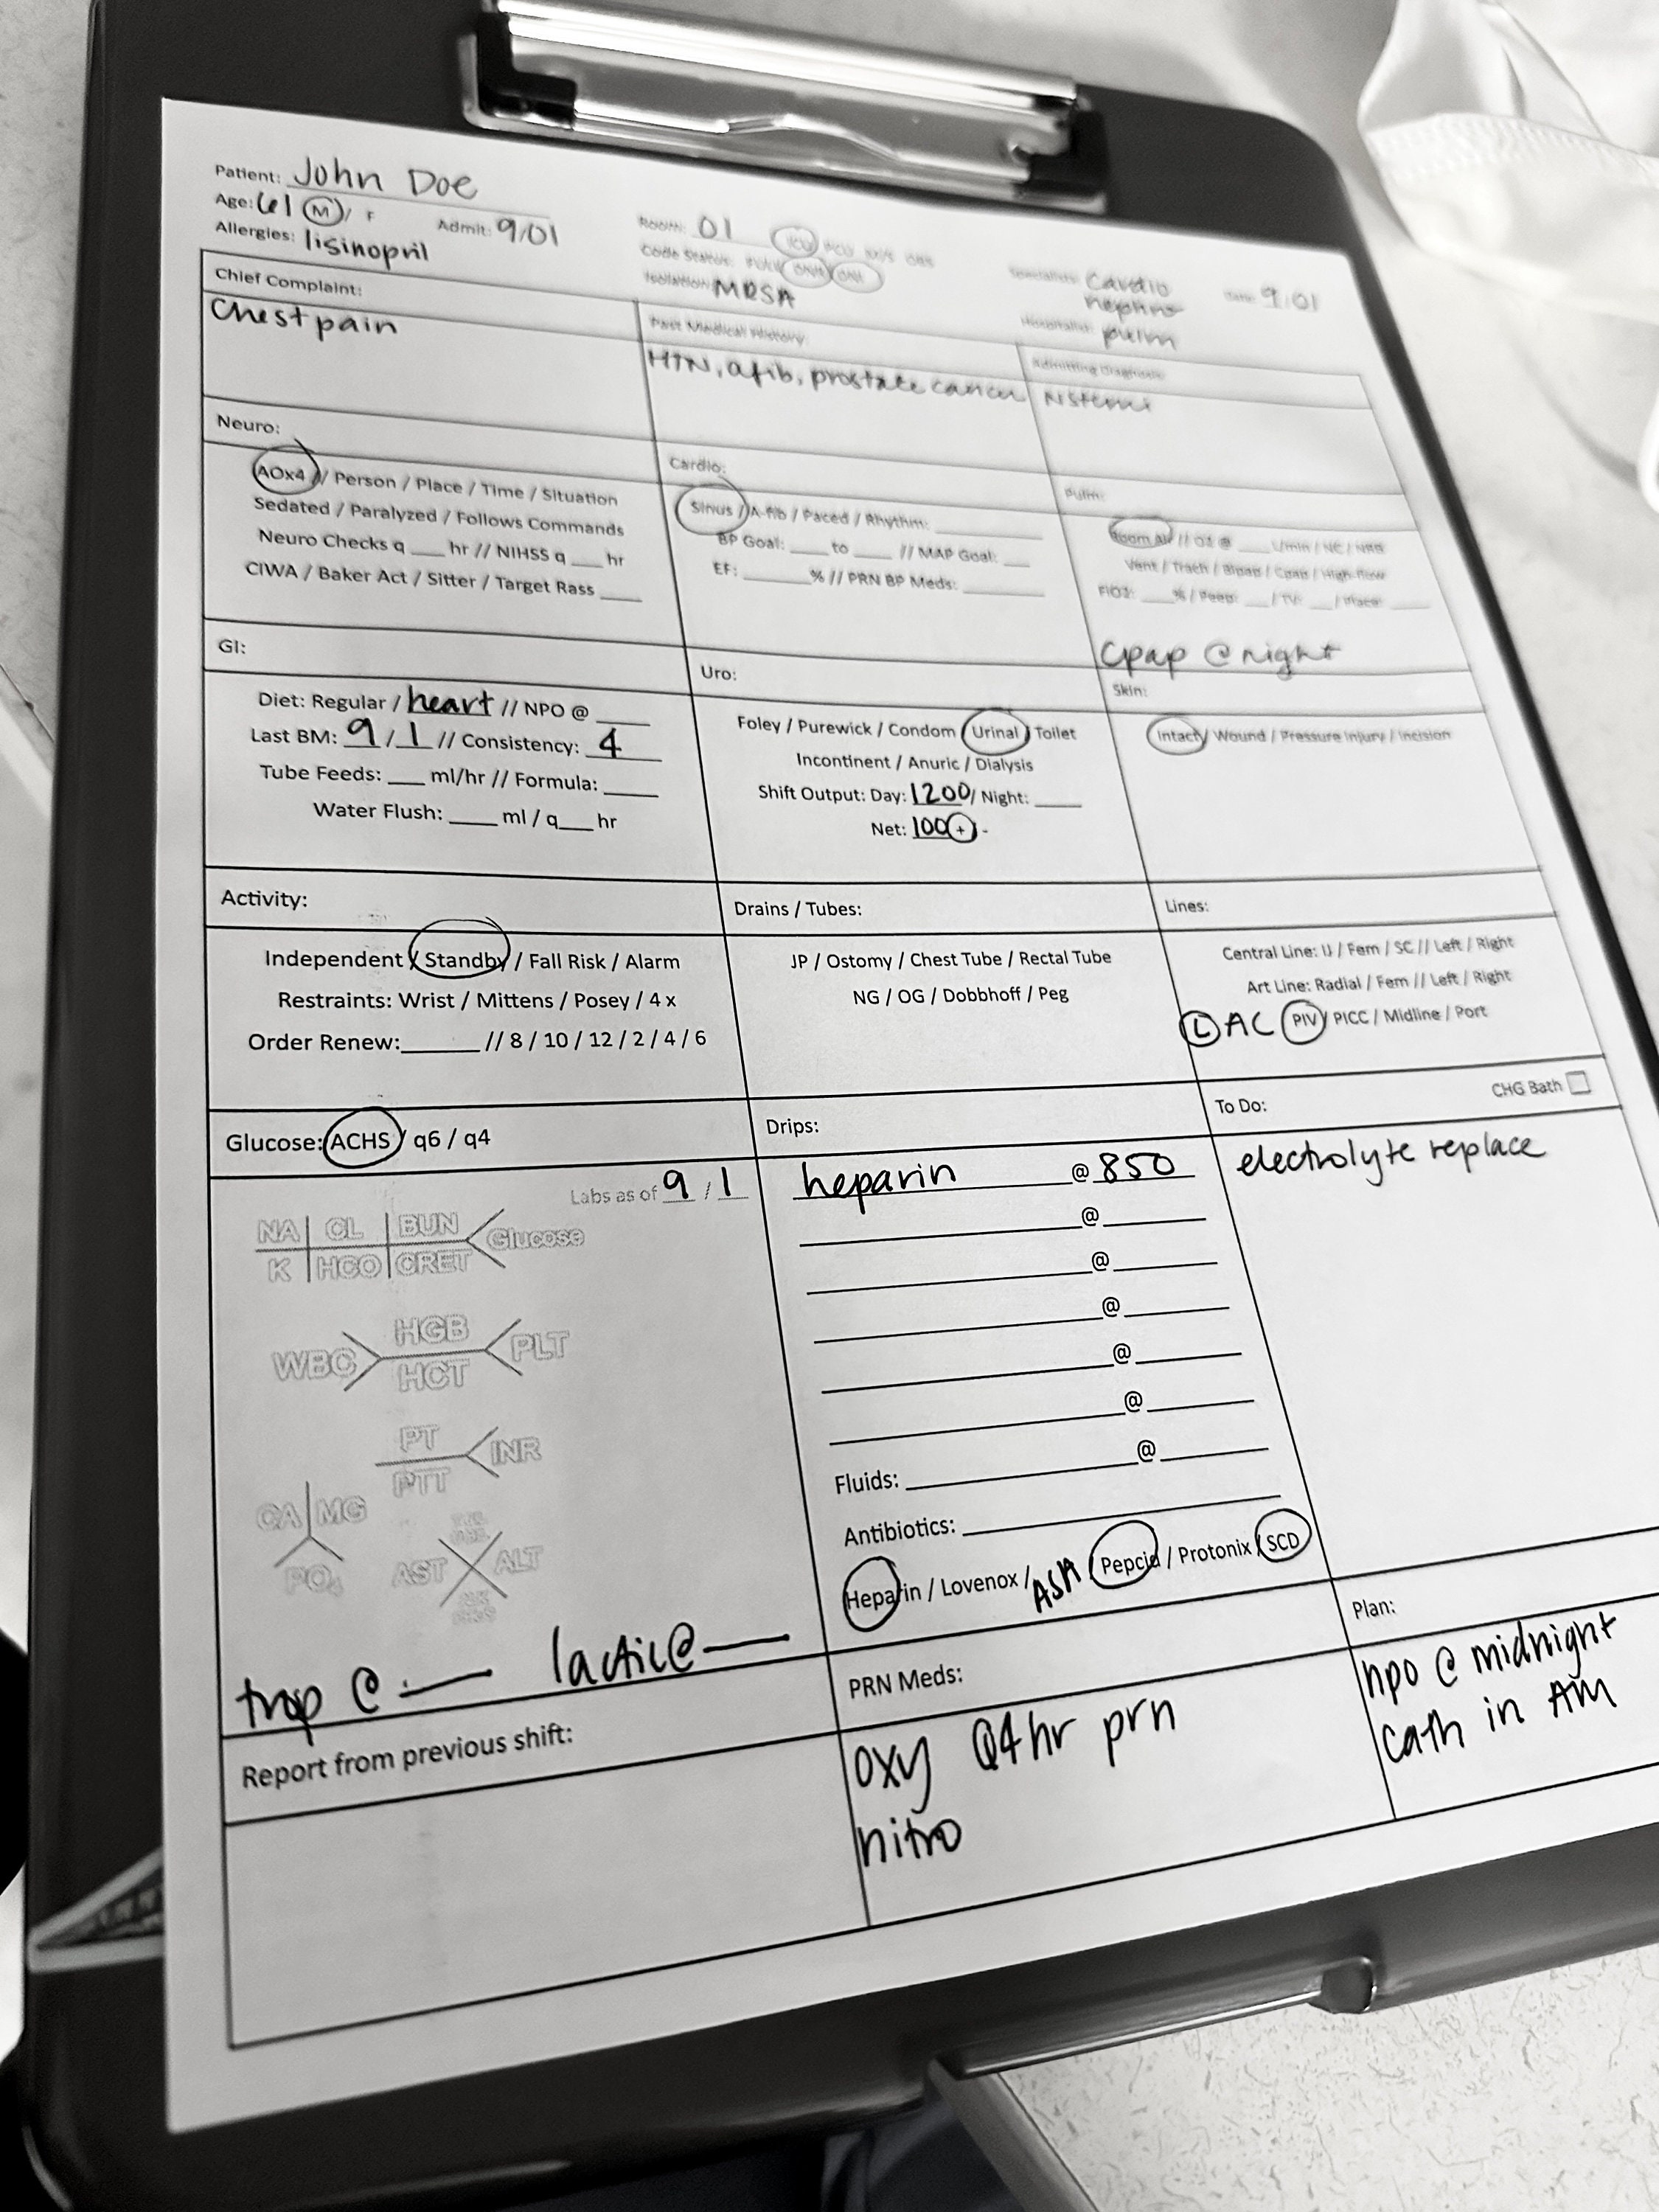 Patient: John Doe
Age: 61 M / F Admit: 9/01
Allergies: lisinopril
Room: 01 ICU PCU M/S OBS
Code Status: FULL DNR DNI
Isolation: MRSA
Specialists: Cardio
nephro
Hospitalist: pulm
Date: 9/01
Chief Complaint:
Chest pain
Past Medical History:
HTN, afib, prostate cancer
Admitting Diagnosis:
NSTEMI
Neuro:
AOx4 // Person / Place / Time / Situation
Sedated / Paralyzed / Follows Commands
Neuro Checks q ___ hr // NIHSS q ___ hr
CIWA / Baker Act / Sitter / Target Rass ____
Cardio:
Sinus / A-fib / Paced / Rhythm: ________
BP Goal: ____ to ____ // MAP Goal: ___
EF: _______% // PRN BP Meds: ________
Pulm:
Room Air // O2 @ ____ L/min / NC / NRB
Vent / Trach / Bipap / Cpap / High-flow
FIO2: ___% / Peep: ___ / TV: ___ / Place: ____
Cpap @ night
GI:
Diet: Regular / heart // NPO @ ____
Last BM: 9 / 1 // Consistency: 4
Tube Feeds: ___ ml/hr // Formula: ____
Water Flush: ____ ml / q___ hr
Uro:
Foley / Purewick / Condom / Urinal / Toilet
Incontinent / Anuric / Dialysis
Shift Output: Day: 1200 / Night: ____
Net: 100 + / -
Skin:
Intact / Wound / Pressure Injury / Incision
Activity:
Independent / Standby / Fall Risk / Alarm
Restraints: Wrist / Mittens / Posey / 4 x
Order Renew: ______ // 8 / 10 / 12 / 2 / 4 / 6
Drains / Tubes:
JP / Ostomy / Chest Tube / Rectal Tube
NG / OG / Dobbhoff / Peg
Lines:
Central Line: IJ / Fem / SC // Left / Right
Art Line: Radial / Fem // Left / Right
L AC PIV / PICC / Midline / Port
Glucose: ACHS / q6 / q4
Labs as of 9 / 1
NA CL BUN Glucose
K HCO CRET
WBC HGB PLT
HCT
PT INR
PTT
CA MG
PO4
AST ALT
trop @ — lactic @ —
Drips:
heparin @ 850
@
@
@
@
@
@
Fluids:
Antibiotics:
Heparin / Lovenox / ASA Pepcid / Protonix / SCD
To Do: CHG Bath
electrolyte replace
Report from previous shift:
PRN Meds:
oxy Q4hr prn
nitro
Plan:
npo @ midnight
cath in AM